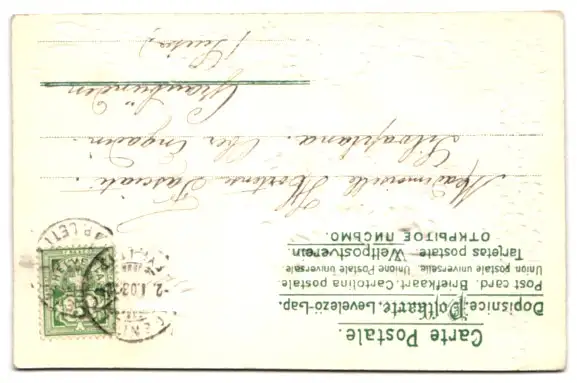 Carte Postale.
Dopisnice. Postkarte. Levelező-Lap.
Post card. Briefkaart. Cartolina postale
Union postale universelle. Unione Postale universale
Tarjetas postale. Weltpostverein
ОТКРЫТОЕ ПИСЬМО.
Mademoiselle Hortense
Silvaplana. Ober Engadin.
Graubünden
(Suisse)